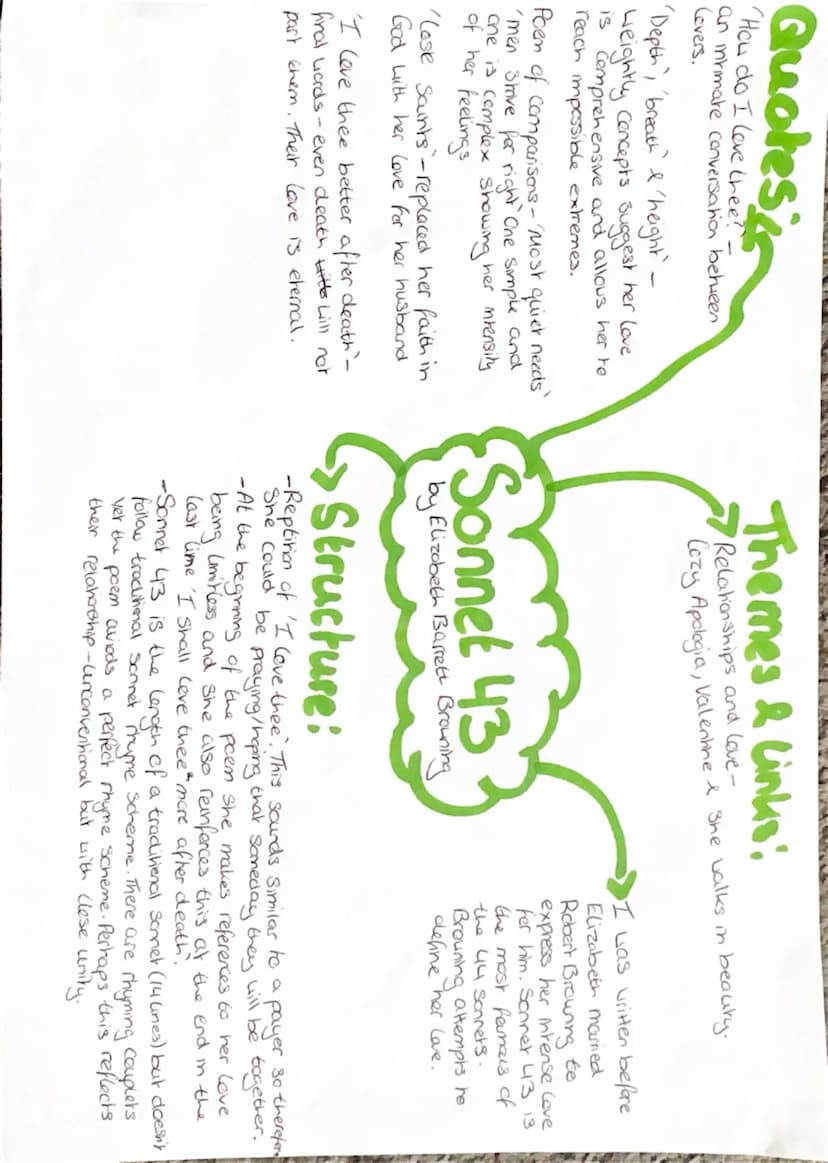 Quotes:
'How do I love thee?' -
an intimate conversation between
lovers.
'Depth', 'breath' & 'height' -
Weightly concepts suggest her love
is comprehensive and allows her to
reach impossible extremes.
Poem of comparisons - 'Most quiet needs'
'men strive for right' One simple and
one is complex showing her intensity
of her feelings
'Lose Saints' - replaced her faith in
God with her love for her husband
'I love thee better after death' -
final words - even death will not
part them. Their love is eternal.
Themes & Links:
Relationships and love -
Cozy Apologia, Valentine & She walks in beauty.
Sonnet 43
by Elizabeth Barrett Browning
I was written before
Elizabeth married
Robert Browning to
express her intense love
for him. Sonnet 43 is
the most famous of
the 44 sonnets.
Browning attempts to
define her love.
Structure:
- Reptition of 'I love thee'. This sounds similar to a prayer so therefore
She could be praying/hoping that someday they will be together.
- At the beginning of the poem she makes references to her love
being limitless and she also reinforces this at the end in the
last line 'I shall love thee more after death'.
- Sonnet 43 is the length of a traditional sonnet (14 lines) but doesn't
follow traditional sonnet rhyme scheme. There are rhyming couplets
yet the poem avoids a perfect rhyme scheme. Perhaps this reflects
their relationship - unconventional but with close unity.